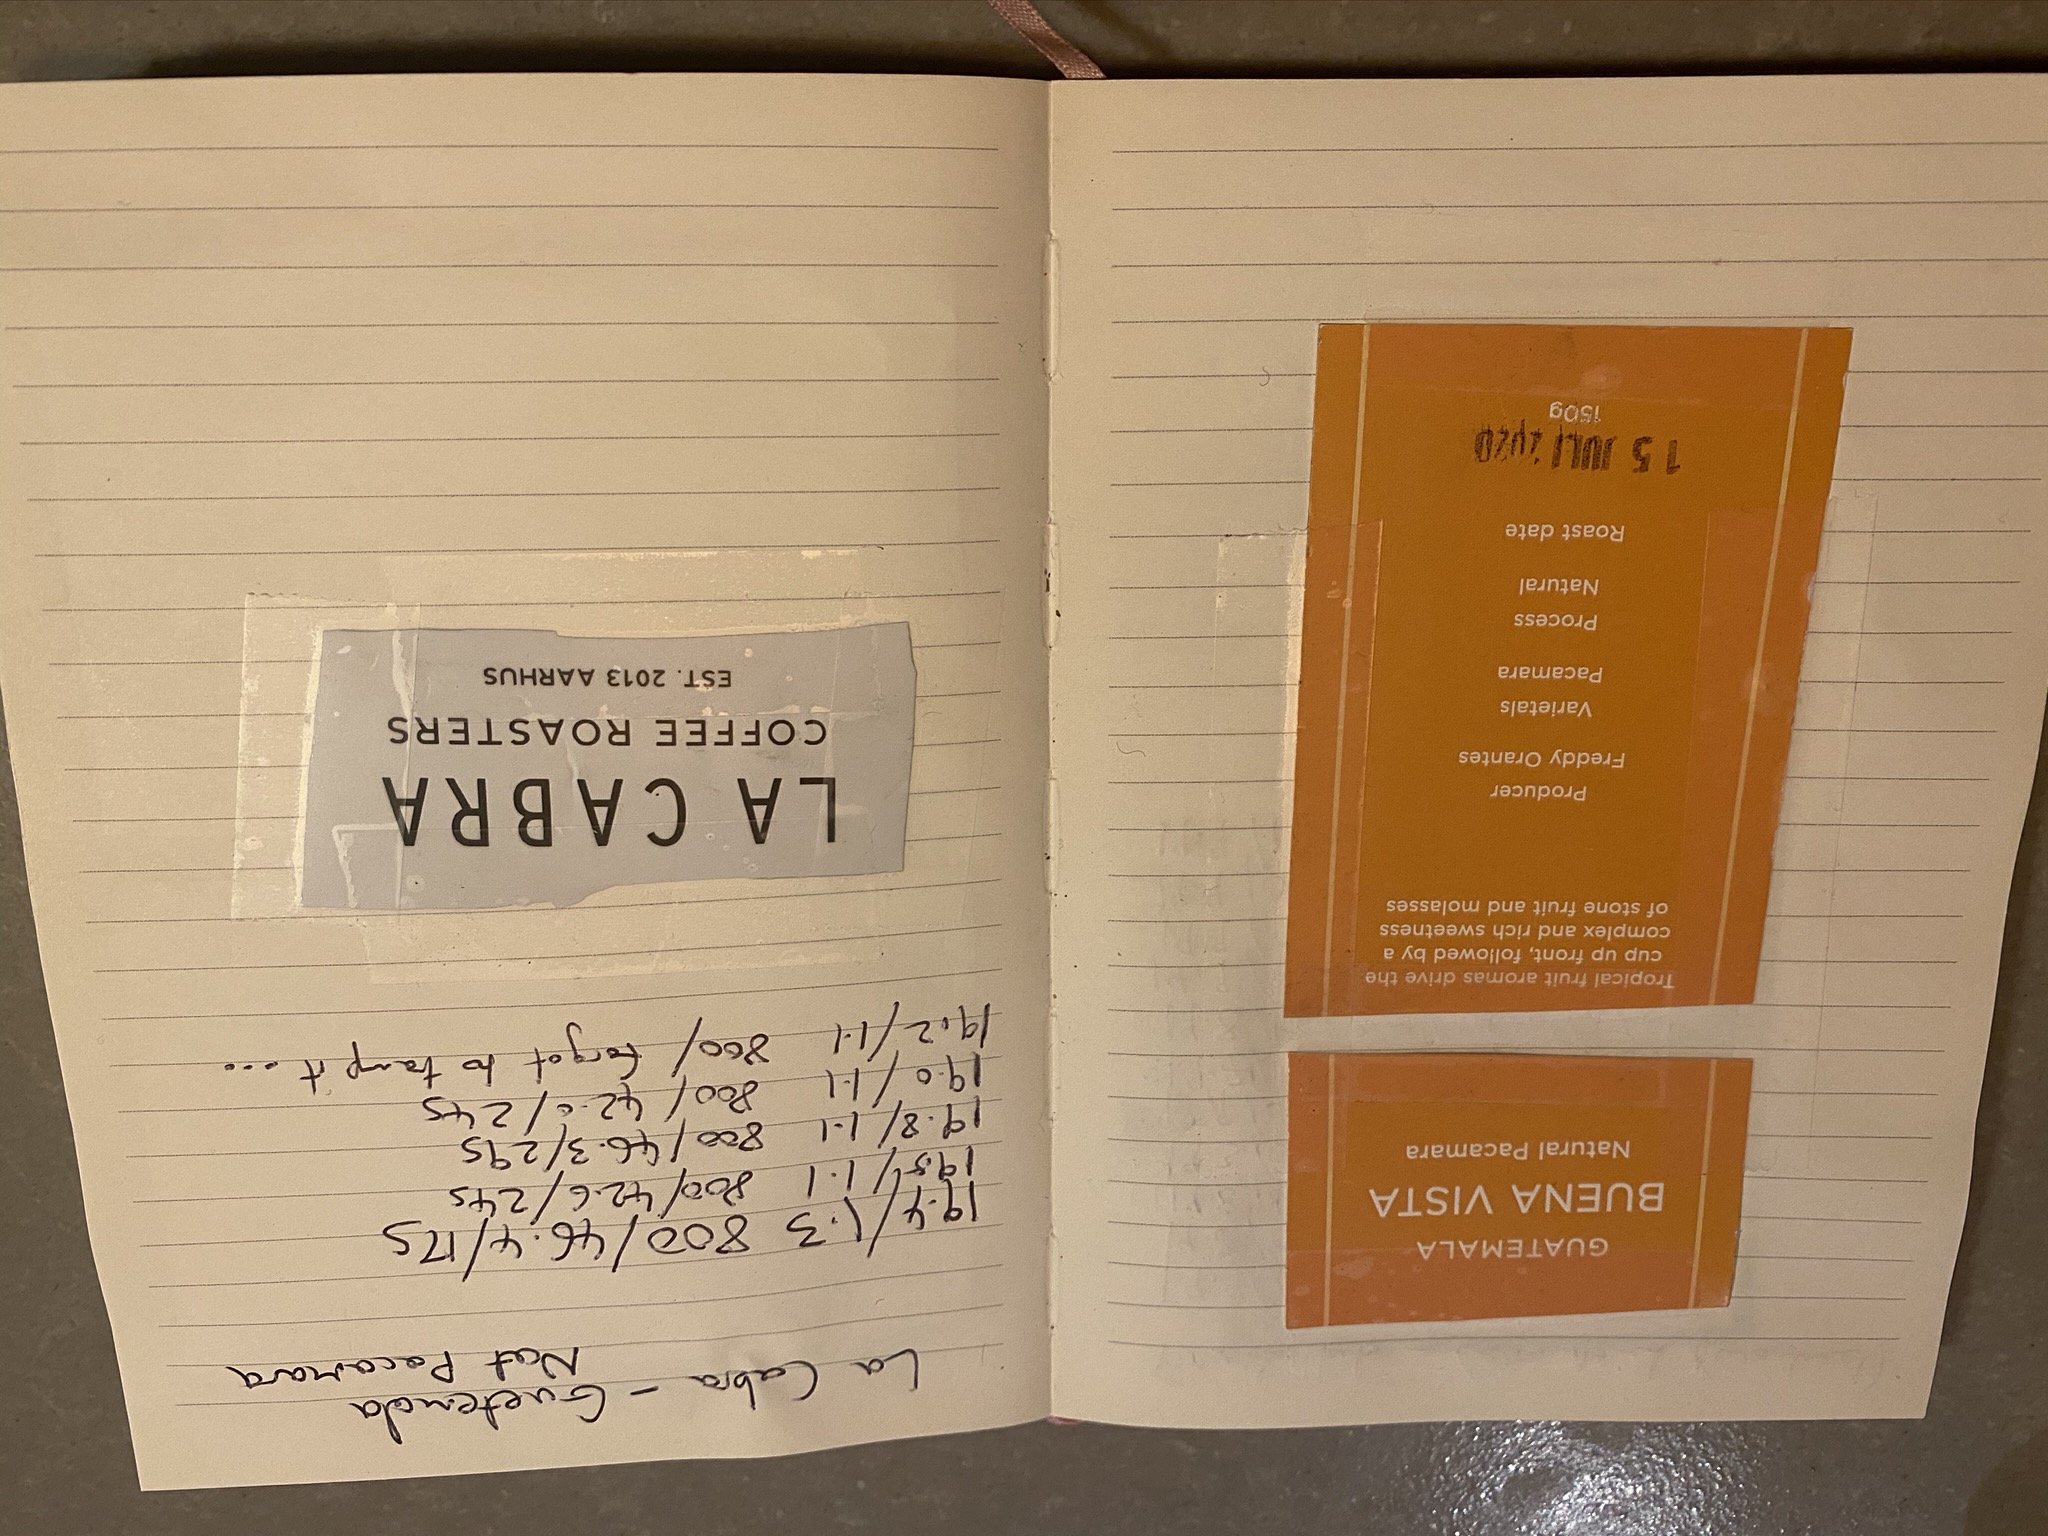 GUATEMALA
BUENA VISTA
Natural Pacamara
Tropical fruit aromas drive the
cup up front, followed by a
complex and rich sweetness
of stone fruit and molasses
Producer
Freddy Orantes
Varietals
Pacamara
Process
Natural
Roast date
15 JULI 2020
150g
La Cabra - Guatemala
Nat Pacamara
19.4/1.3 800/46.4/17s
19.5/1.1 800/42.6/24s
19.8/1.1 800/46.3/29s
19.0/1.1 800/42.0/24s
19.2/1.1 800/ forgot to tamp it....
LA CABRA
COFFEE ROASTERS
EST. 2013 AARHUS